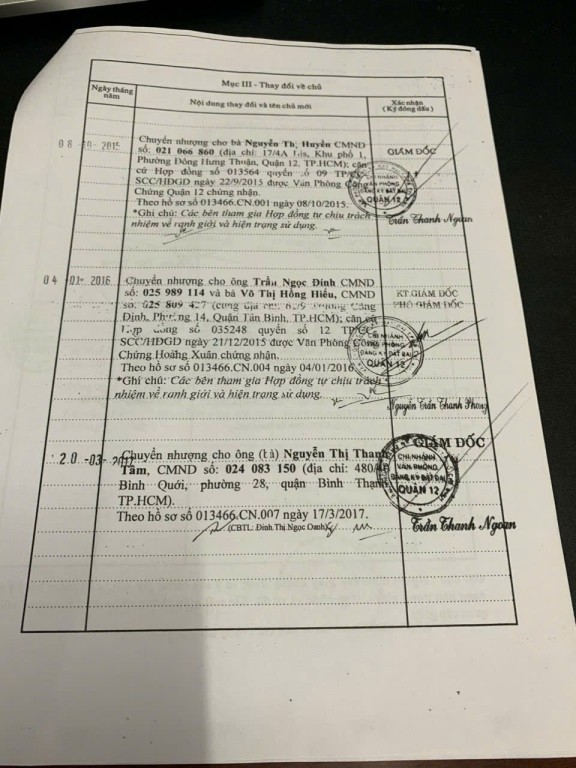 Mục III - Thay đổi về chủ
Ngày tháng năm
Nội dung thay đổi và tên chủ mới
Xác nhận
(Ký đóng dấu)
08 -10- 2015
Chuyển nhượng cho bà Nguyễn Thị Huyền CMND
số: 021 066 860 (địa chỉ: 17/4A Khu phố 1,
Phường Đông Hưng Thuận, Quận 12, TP.HCM); căn
cứ Hợp đồng số 013564 quyển số 09 TP/CC-
SCC/HĐGD ngày 22/9/2015 được Văn Phòng Công
Chứng Quận 12 chứng nhận.
Theo hồ sơ số 013466.CN.001 ngày 08/10/2015.
*Ghi chú: Các bên tham gia Hợp đồng tự chịu trách
nhiệm về ranh giới và hiện trạng sử dụng.
GIÁM ĐỐC
CHI NHÁNH
VĂN PHÒNG
ĐĂNG KÝ ĐẤT ĐAI
QUẬN 12
Trần Thanh Ngoan
04 -01- 2016
Chuyển nhượng cho ông Trần Ngọc Đính CMND
số: 025 989 114 và bà Võ Thị Hồng Hiếu, CMND
số: 025 809 (cùng địa chỉ: đường Cộng
Định, Phường 14, Quận Tân Bình, TP.HCM); căn cứ
Hợp đồng số 035248 quyển số 12 TP/CC-
SCC/HĐGD ngày 21/12/2015 được Văn Phòng Công
Chứng Hoàng Xuân chứng nhận.
Theo hồ sơ số 013466.CN.004 ngày 04/01/2016
*Ghi chú: Các bên tham gia Hợp đồng tự chịu trách
nhiệm về ranh giới và hiện trạng sử dụng.
KT.GIÁM ĐỐC
PHÓ GIÁM ĐỐC
CHI NHÁNH
VĂN PHÒNG
ĐĂNG KÝ ĐẤT ĐAI
QUẬN 12
Nguyễn Trần Thanh Phong
20 -03- 2017
Chuyển nhượng cho ông (bà) Nguyễn Thị Thanh
Tâm, CMND số: 024 083 150 (địa chỉ: 480/
Bình Quới, phường 28, quận Bình Thạnh
TP.HCM).
Theo hồ sơ số 013466.CN.007 ngày 17/3/2017.
(CBTL: Đinh Thị Ngọc Oanh)
GIÁM ĐỐC
CHI NHÁNH
VĂN PHÒNG
ĐĂNG KÝ ĐẤT ĐAI
QUẬN 12
Trần Thanh Ngoan